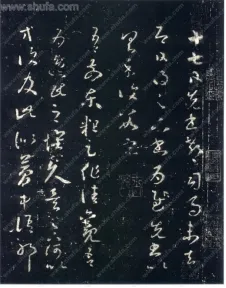 www.shufa.com
十七日先書郗司馬未去
即日得足下書為慰先書以
具示復數字
吾前東粗足作佳觀吾
為逸民之懷久矣足下何以
方復及此似夢中語耶